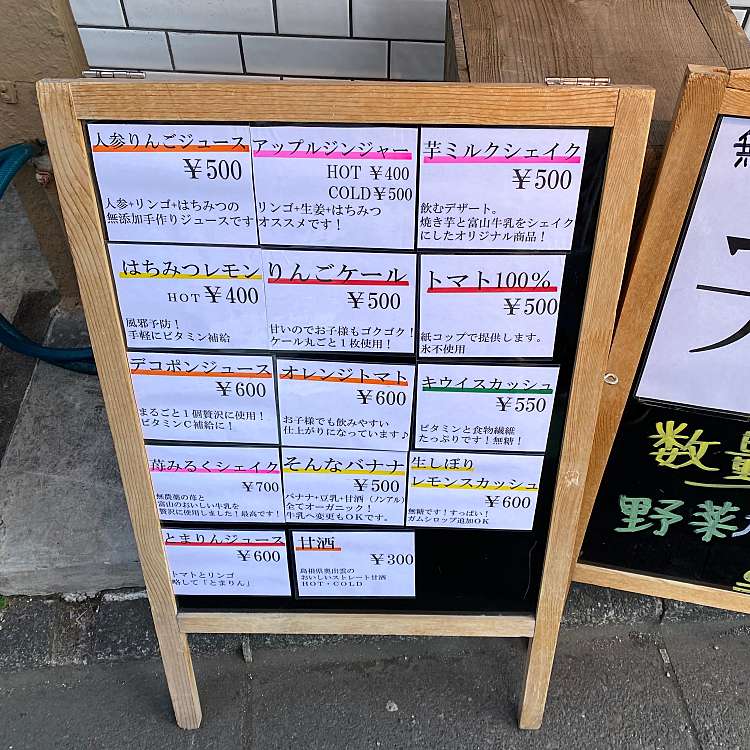 人参りんごジュース
¥500
人参+リンゴ+はちみつの
無添加手作りジュースです
アップルジンジャー
HOT ¥400
COLD¥500
リンゴ+生姜+はちみつ
オススメです！
芋ミルクシェイク
¥500
飲むデザート。
焼き芋と富山牛乳をシェイク
にしたオリジナル商品！
はちみつレモン
HOT ¥400
風邪予防！
手軽にビタミン補給
りんごケール
¥500
甘いのでお子様もゴクゴク！
ケール丸ごと１枚使用！
トマト100%
¥500
紙コップで提供します。
氷不使用
デコポンジュース
¥600
まるごと１個贅沢に使用！
ビタミンC補給に！
オレンジトマト
¥600
お子様でも飲みやすい
仕上がりになっています♪
キウイスカッシュ
¥550
ビタミンと食物繊維
たっぷりです！無糖！
苺みるくシェイク
¥700
無農薬の苺と
富山のおいしい牛乳を
贅沢に使用しました！最高です！
そんなバナナ
¥500
バナナ+豆乳+甘酒（ノンアル）
全てオーガニック！
牛乳へ変更もOKです。
生しぼり
レモンスカッシュ
¥600
無糖です！すっぱい！
ガムシロップ追加OK
とまりんジュース
¥600
トマトとリンゴ
略して「とまりん」
甘酒
¥300
島根県奥出雲の
おいしいストレート甘酒
HOT・COLD
数量
野菜